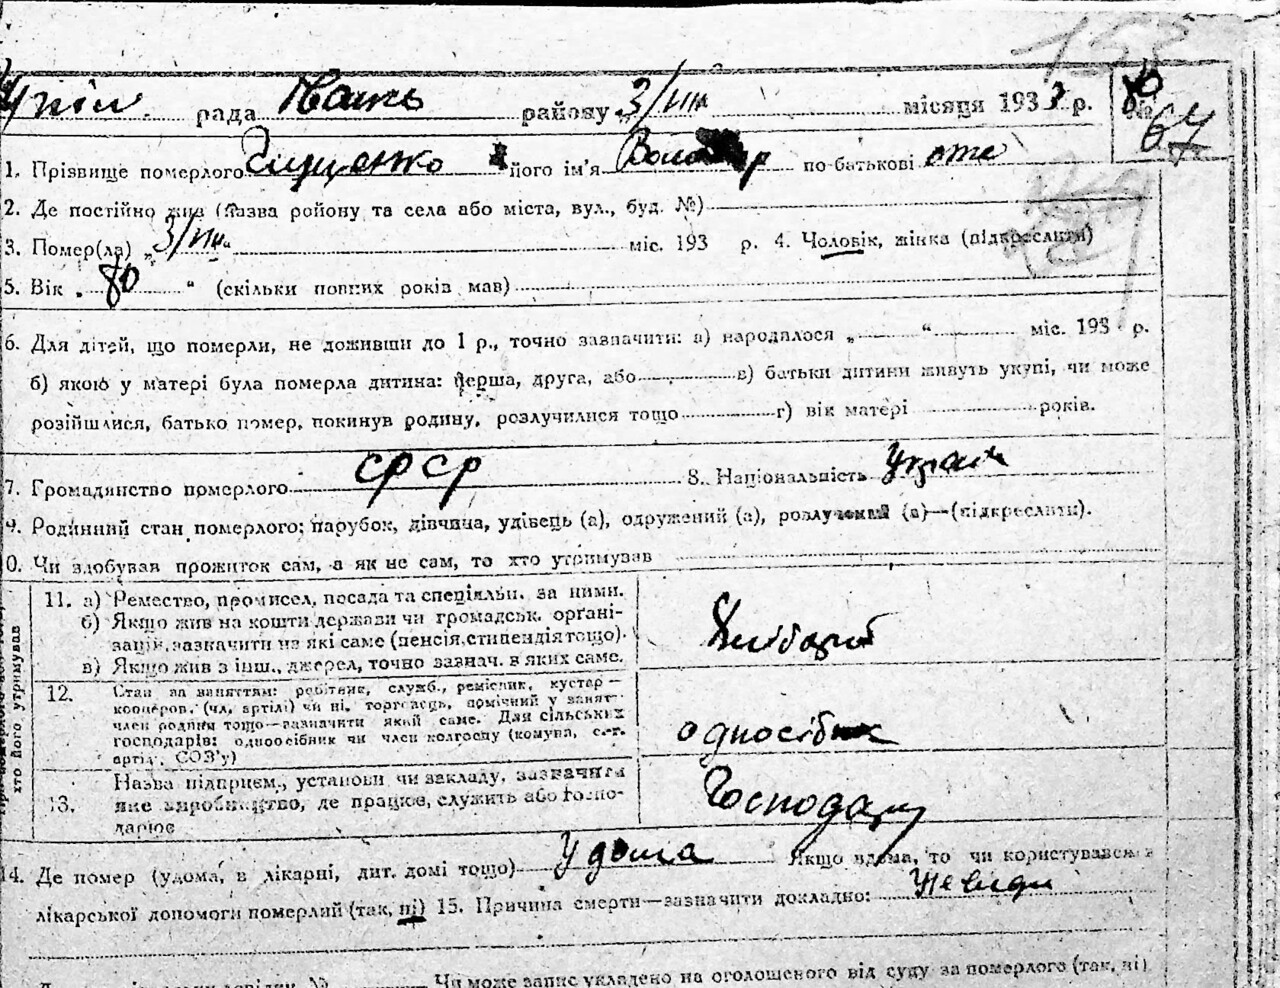 153
рада району 3/VIII місяця 1933 р. 80
67
1. Прізвище померлого його ім'я по-батькові
2. Де постійно жив (назва ройону та села або міста, вул., буд. №)
3. Помер(ла) „3/VIII“ міс. 193 р. 4. Чоловік, жінка (підкреслити)
5. Вік „80“ (скільки повних років мав)
6. Для дітей, що померли, не доживши до 1 р., точно зазначити: а) народилося „ “ міс. 193 р.
б) якою у матері була померла дитина: перша, друга, або в) батьки дитини живуть укупі, чи може
розійшлися, батько помер, покинув родину, розлучилися тощо г) вік матері років.
7. Громадянство померлого СРСР 8. Національність Україн
9. Родинний стан померлого; парубок, дівчина, удівець (а), одружений (а), розлучений (а)—(підкреслити).
0. Чи здобував прожиток сам, а як не сам, то хто утримував
хто його утримував
11. а) Ремество, промисел, посада та спеціяльн. за ними.
б) Якщо жив на кошти держави чи громадськ. орґані-
зацій, зазначити на які саме (пенсія, стипендія тощо).
в) Якщо жив з інш., джерел, точно зазнач. в яких саме.
Хлібороб
12. Стан за заняттям: робітник, служб., ремісник, кустар—
кооперов. (чл. артілі) чи ні, торговець, помічний у занят.
член родини тощо—зазначити який саме. Для сільських
господарів: одноосібник чи член колгоспу (комуна, с.-г.
артіл. СОЗ'у)
односібник
13. Назва підприєм., установи чи закладу, зазначити
яке виробництво, де працює, служить або госпо-
дарює
Господар
14. Де помер (удома, в лікарні, дит. домі тощо) Удома Якщо вдома, то чи користувався
лікарської допомоги померлий (так, ні) 15. Причина смерти—зазначити докладно:
Чи може запис укладено на оголошеного від суду за померлого (так, ні)